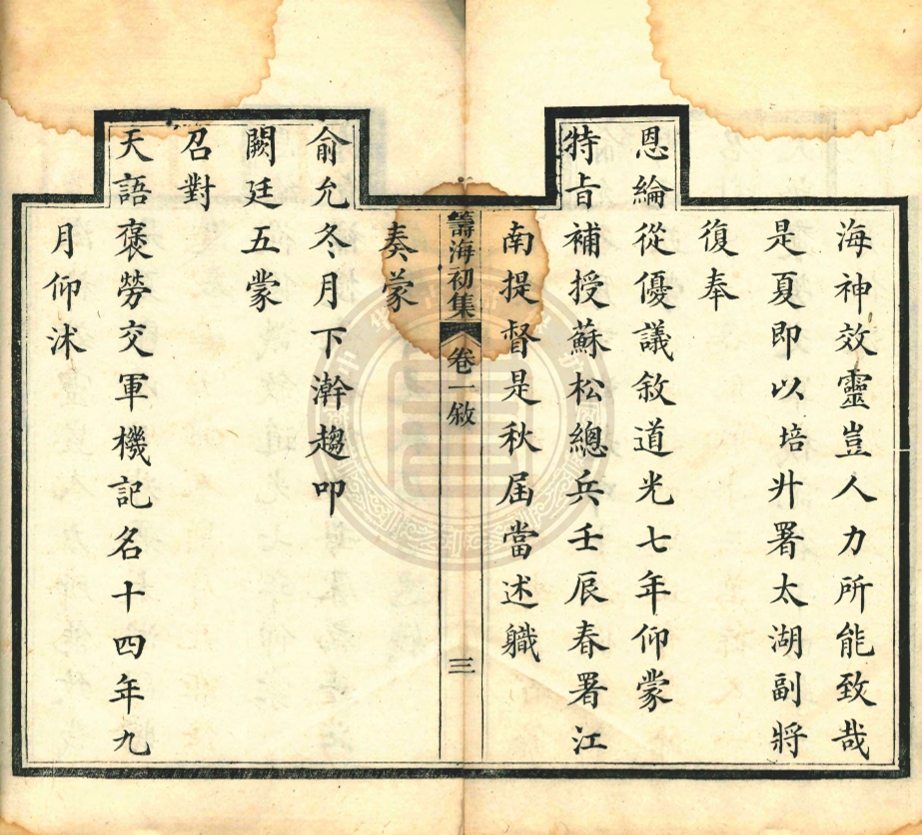 海神效靈豈人力所能致哉
是夏即以培升署太湖副將
復奉
恩綸從優議敘道光七年仰蒙
特旨補授蘇松總兵壬辰春署江
南提督是秋屆當述職
籌海初集 卷一敘 三
奏蒙
俞允冬月下澣趨叩
闕廷五蒙
召對
天語褒勞交軍機記名十四年九
月仰沐